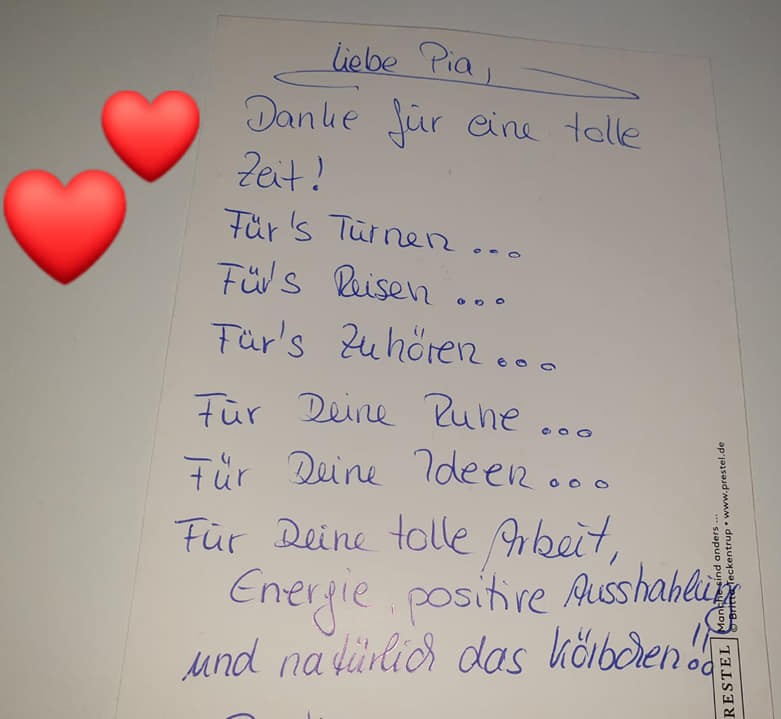 liebe Pia,
Danke für eine tolle
Zeit!
Für's Turnen ...
Für's Reisen ...
Für's Zuhören ...
Für Deine Ruhe ...
Für Deine Ideen ...
Für Deine tolle Arbeit,
Energie, positive Ausstrahlung
und natürlich das Körbchen!!
Manche sind anders ...
© Britta Teckentrup • www.prestel.de
PRESTEL